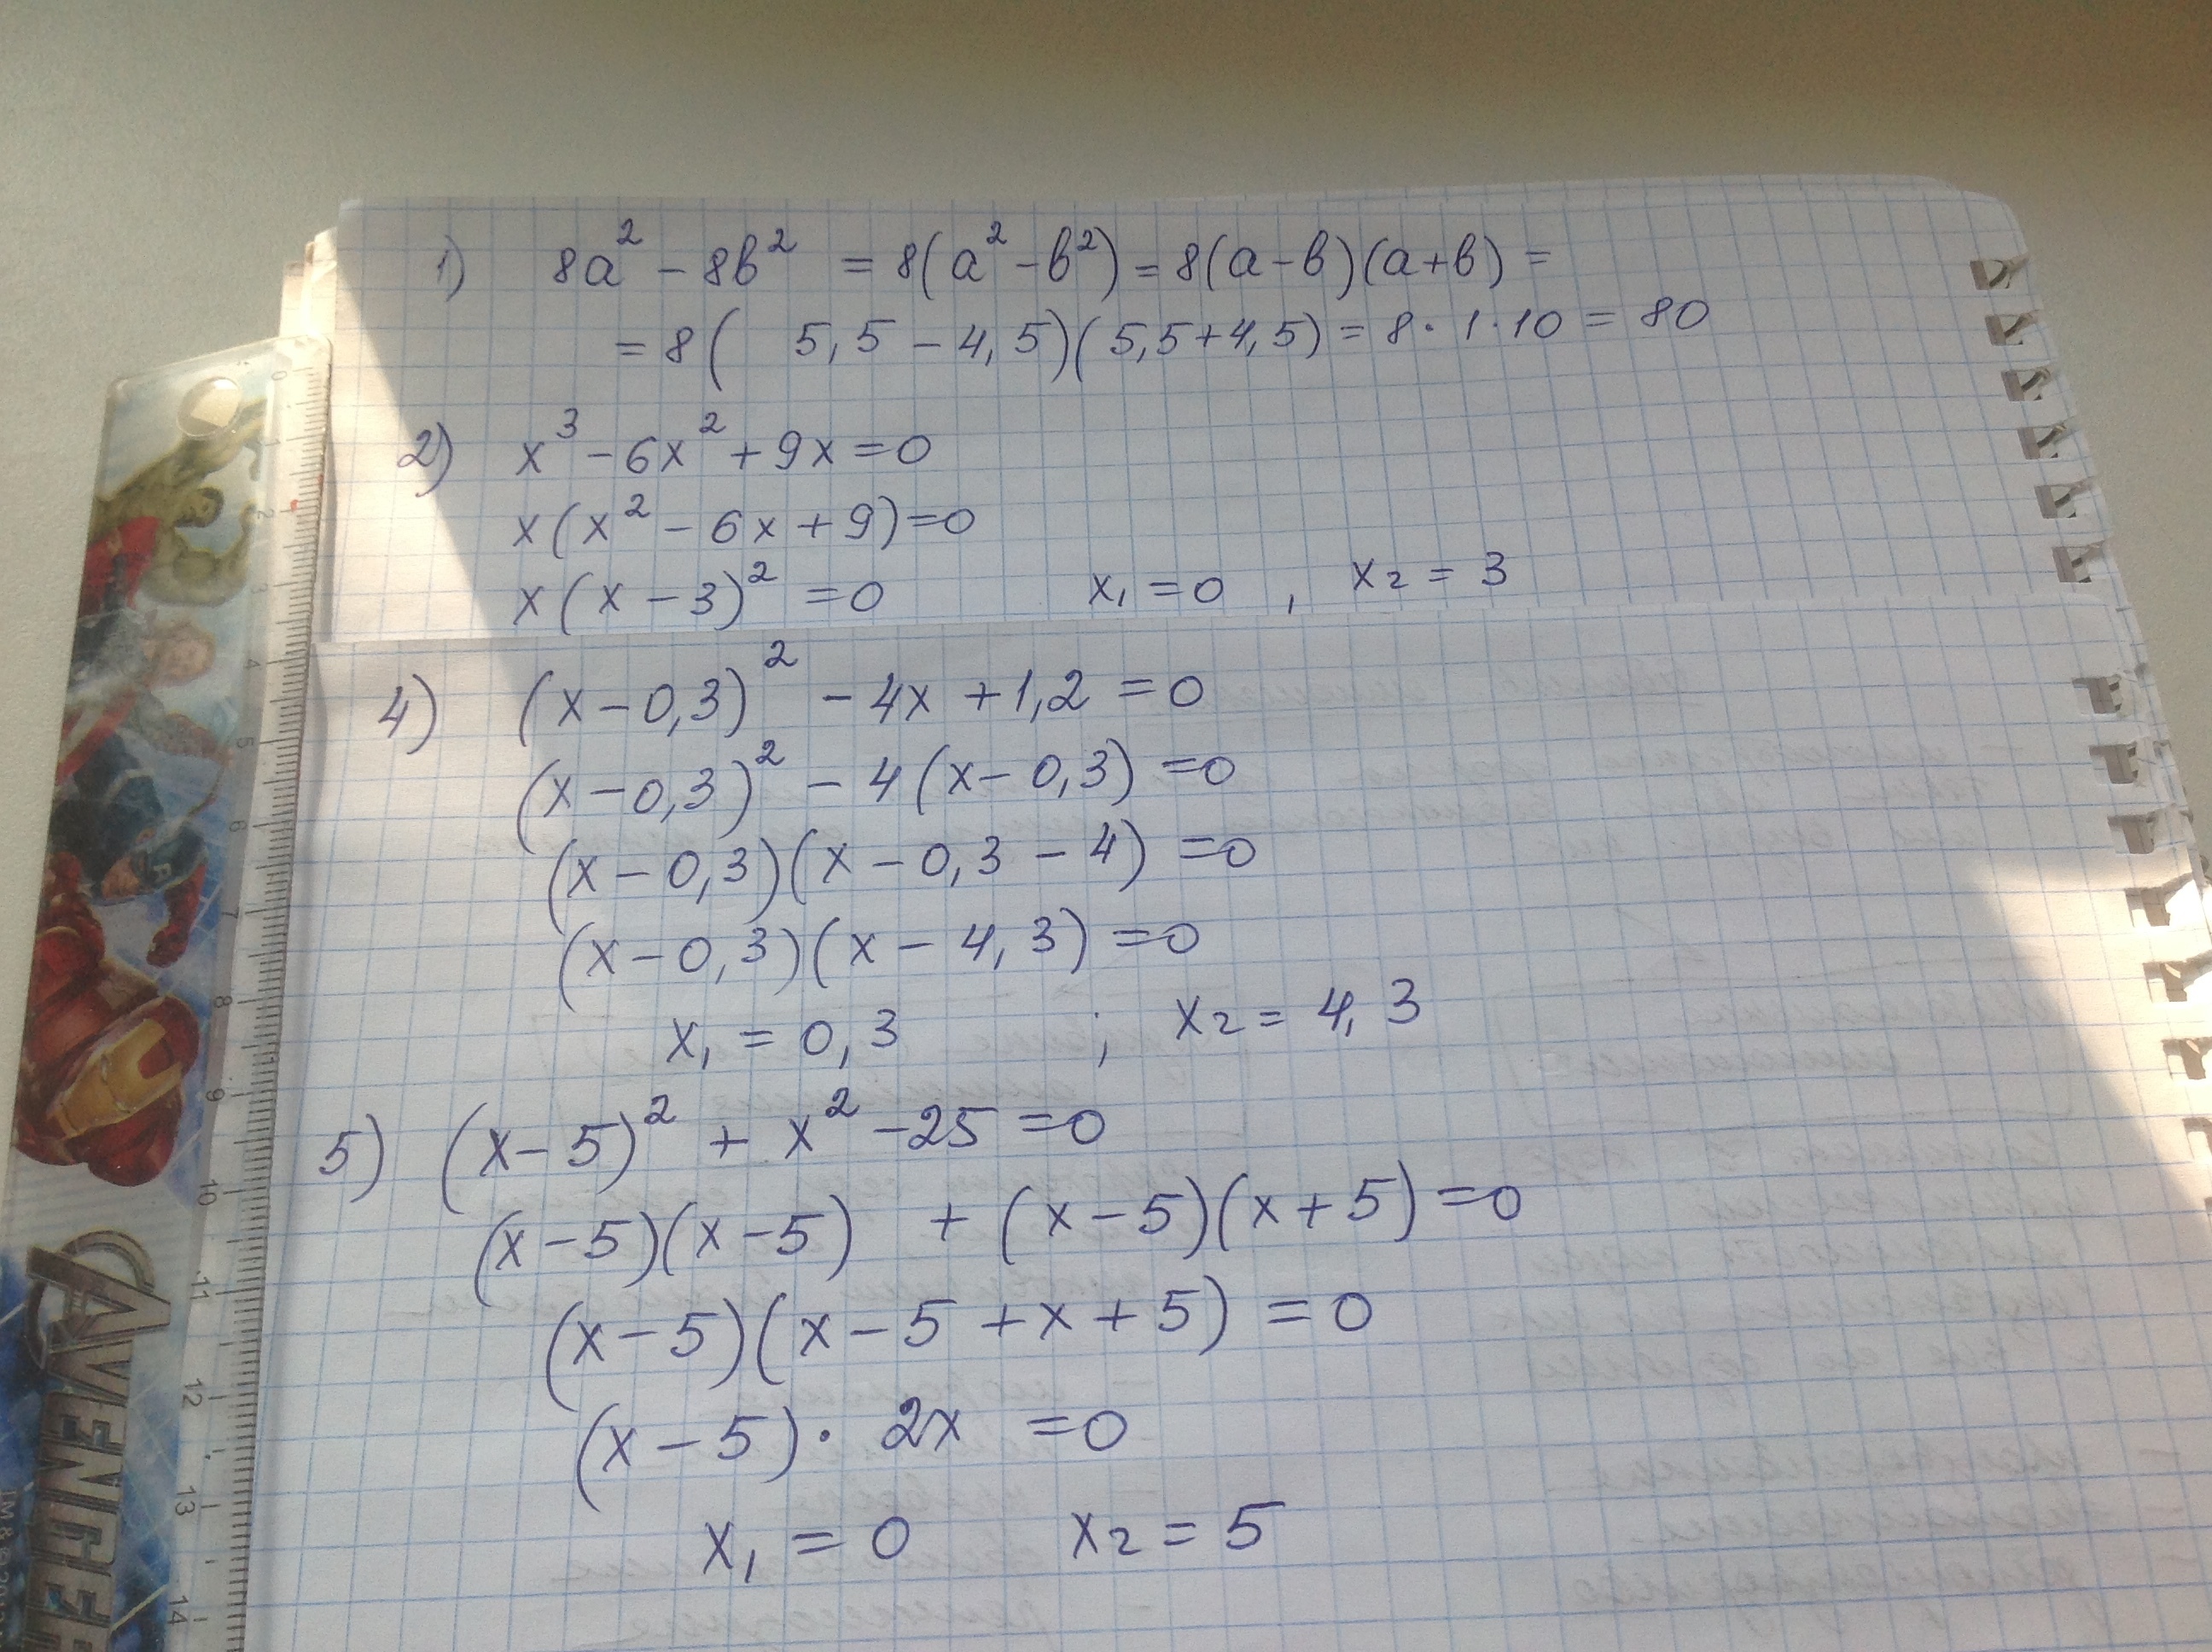 1) 8a² - 8b² = 8(a² - b²) = 8(a - b)(a + b) =
= 8( 5,5 - 4,5)(5,5 + 4,5) = 8 · 1 · 10 = 80
2) x³ - 6x² + 9x = 0
x(x² - 6x + 9) = 0
x(x - 3)² = 0 x₁ = 0 , x₂ = 3
4) (x - 0,3)² - 4x + 1,2 = 0
(x - 0,3)² - 4(x - 0,3) = 0
(x - 0,3)(x - 0,3 - 4) = 0
(x - 0,3)(x - 4,3) = 0
x₁ = 0,3 ; x₂ = 4,3
5) (x - 5)² + x² - 25 = 0
(x - 5)(x - 5) + (x - 5)(x + 5) = 0
(x - 5)(x - 5 + x + 5) = 0
(x - 5) · 2x = 0
x₁ = 0 x₂ = 5
0 1 2 3 4 5 6 7 8 9 10 11 12 13 14
AVENGER